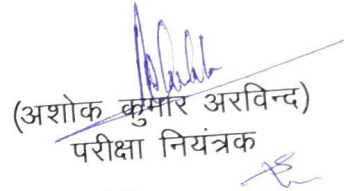 (अशोक कुमार अरविन्द)
परीक्षा नियंत्रक